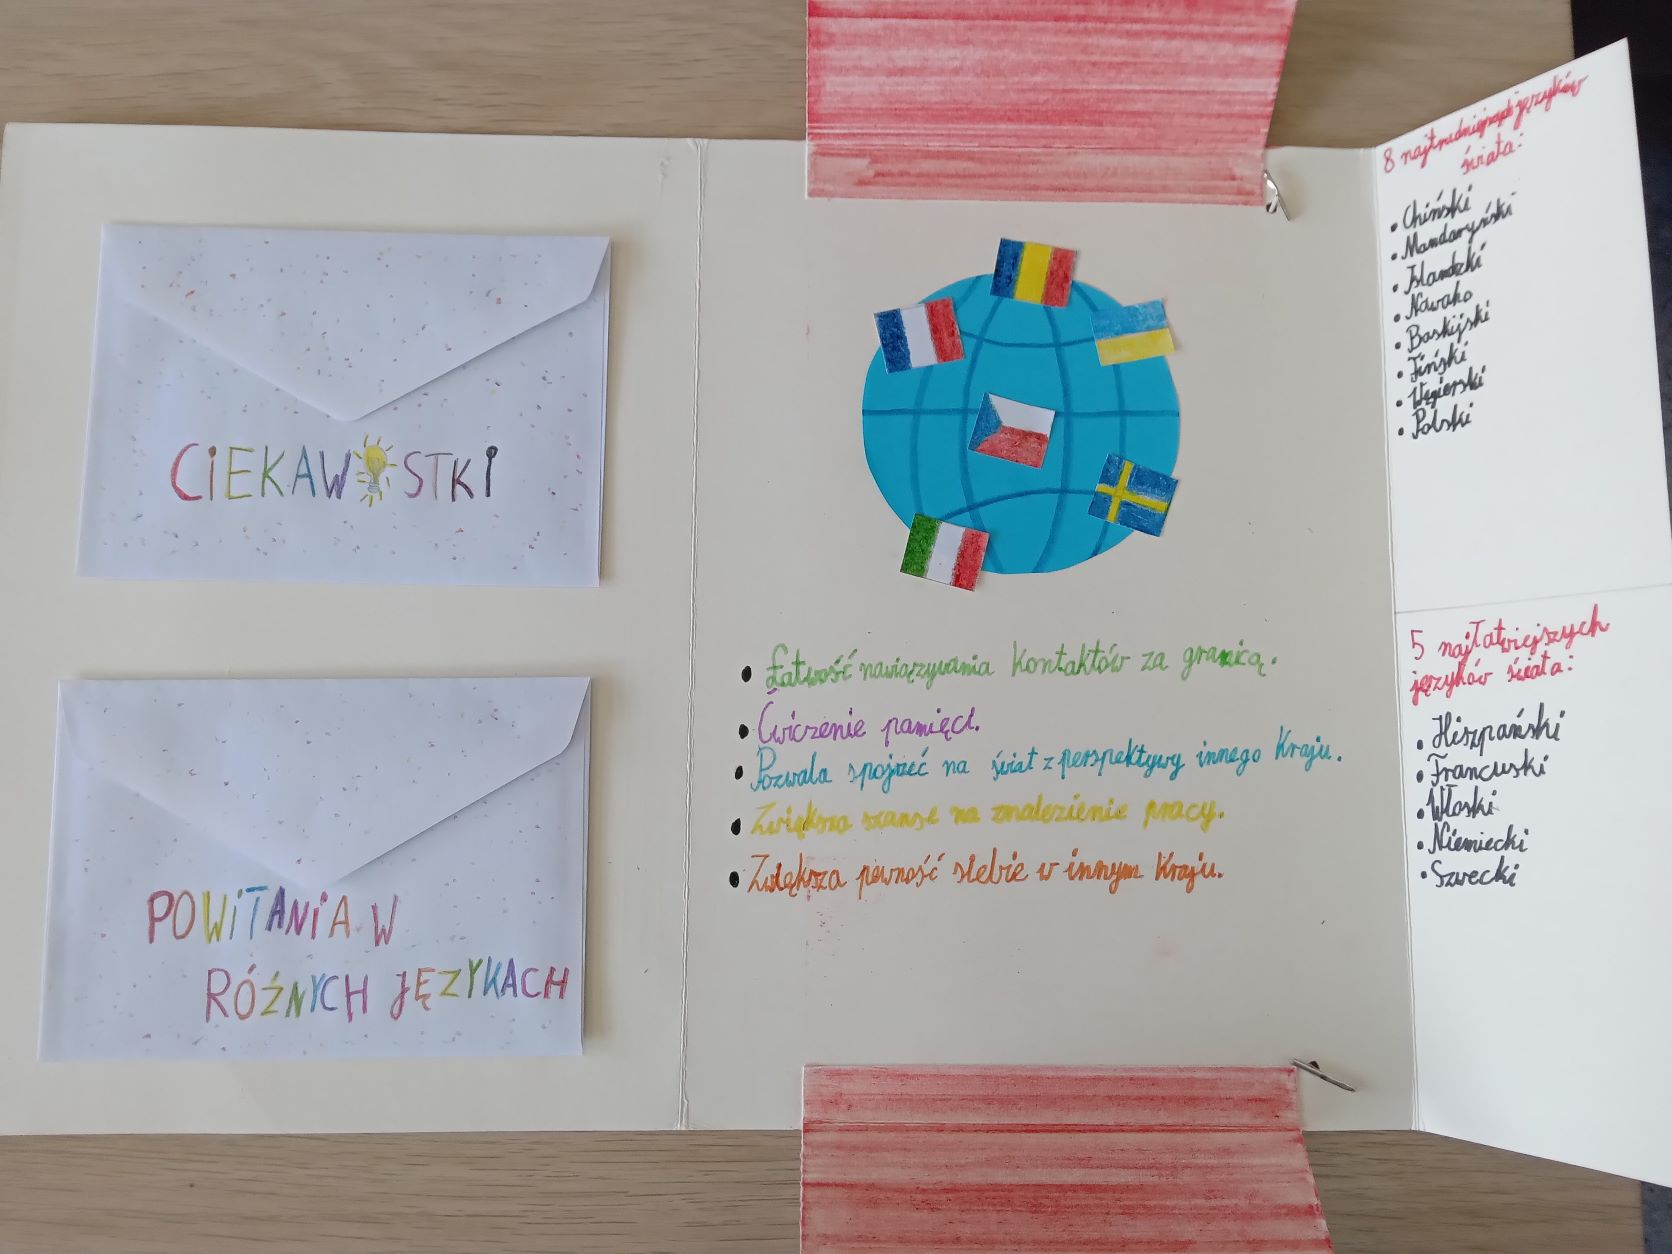 CIEKAWOSTKI
POWITANIA W
RÓŻNYCH JĘZYKACH
• Łatwość nawiązywania kontaktów za granicą.
• Ćwiczenie pamięci.
• Pozwala spojrzeć na świat z perspektywy innego kraju.
• Zwiększa szansę na znalezienie pracy.
• Zwiększa pewność siebie w innym kraju.
8 najtrudniejszych języków
świata:
• Chiński
• Mandaryński
• Islandzki
• Nawaho
• Baskijski
• Fiński
• Węgierski
• Polski
5 najłatwiejszych
języków świata:
• Hiszpański
• Francuski
• Włoski
• Niemiecki
• Szwecki